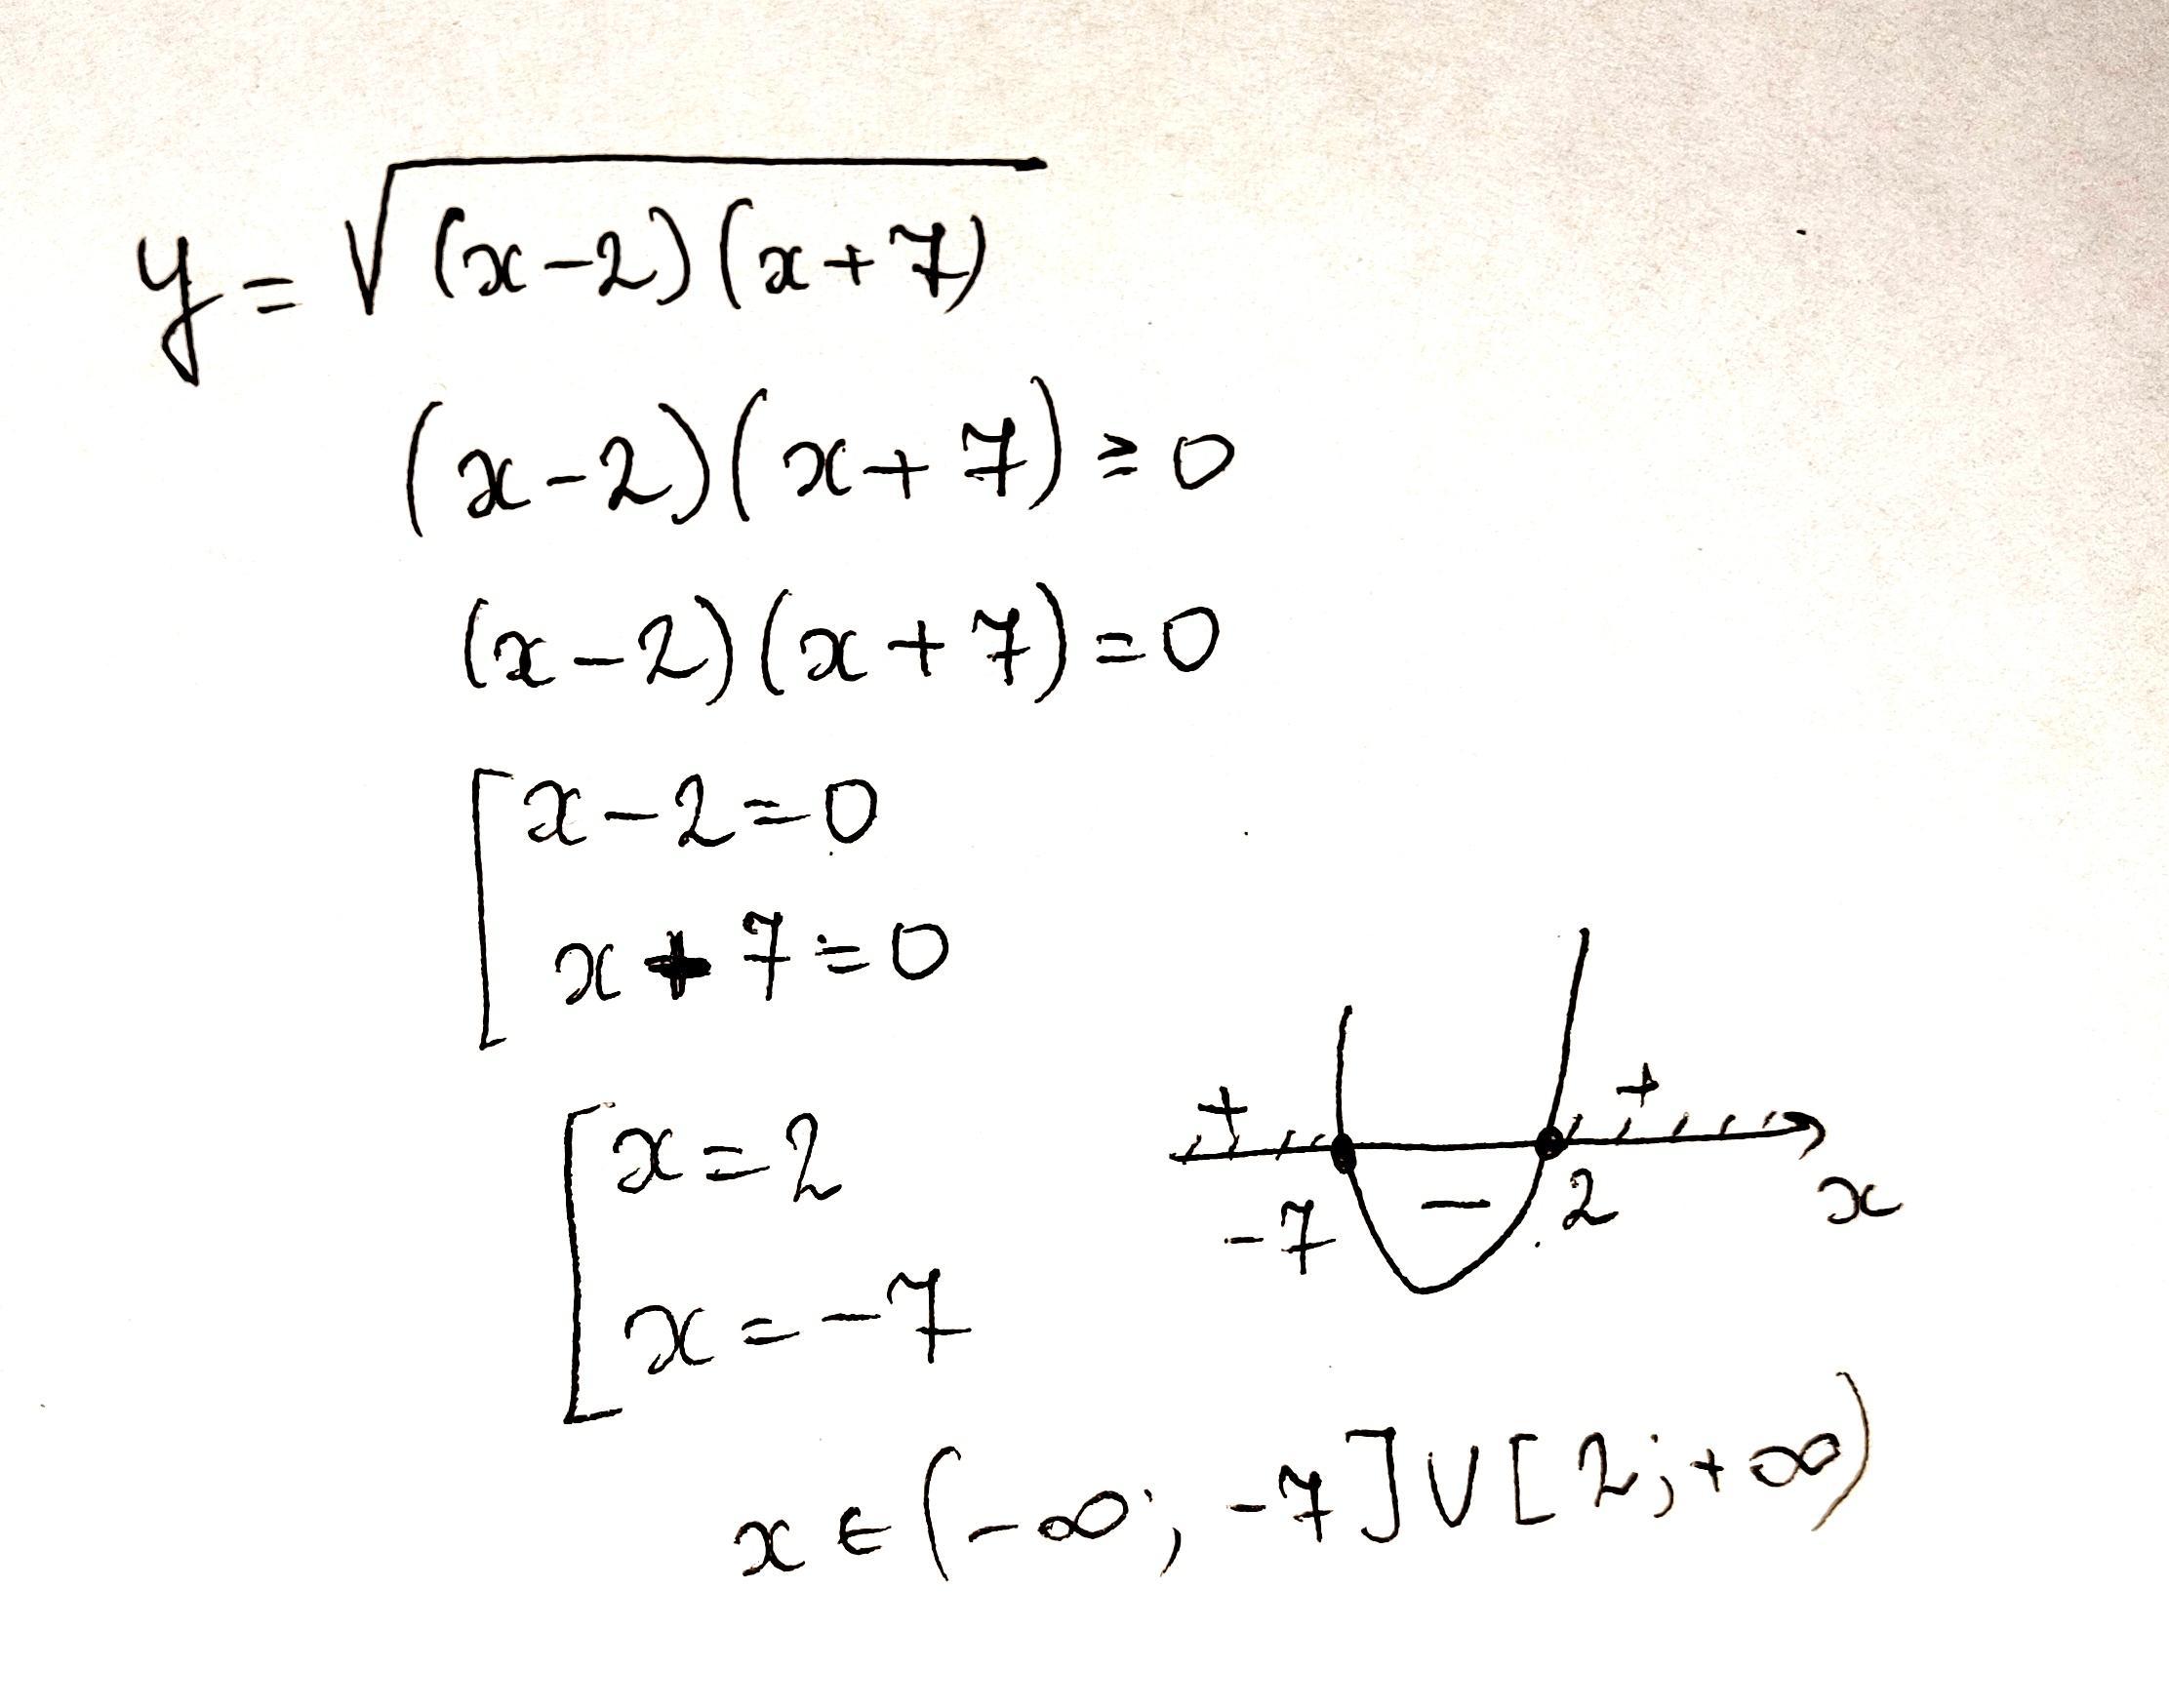 y = √(x-2)(x+7)
(x-2)(x+7) ≥ 0
(x-2)(x+7) = 0
[ x-2=0
x+7=0
[ x=2
x=-7
+ +
-7 - 2 x
x ∈ (-∞; -7] ∪ [2; +∞)